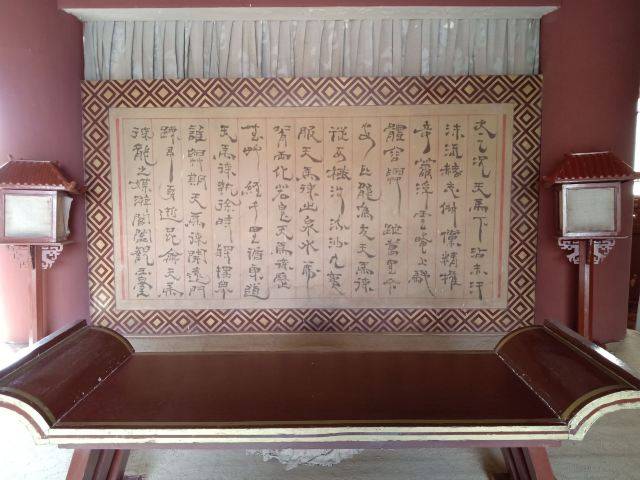 太一況天馬下沾赤汗
沫流赭志俶儻精權
奇籋浮雲晻上馳
體容與迣萬里今
安匹龍為友天馬徠
從西極涉流沙九夷
服天馬徠出泉水虎
脊兩化若鬼天馬徠歷
無草徑千里循東道
天馬徠執徐時將搖舉
誰與期天馬徠開遠門
竦予身逝昆侖天馬
徠龍之媒游閶闔觀玉臺